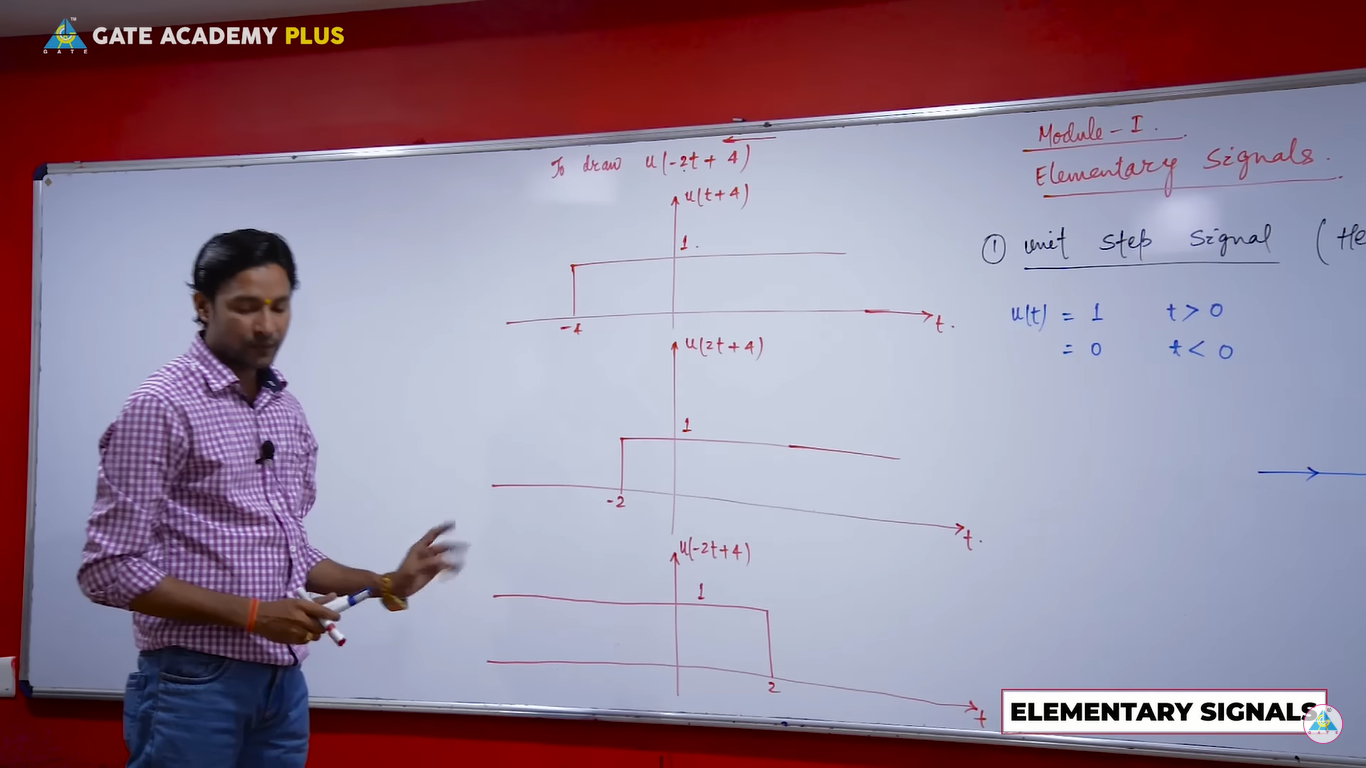 GATE ACADEMY PLUS
GATE
To draw u(-2t + 4)
u(t+4)
1.
-4
t.
u(2t+4)
1
-2
t.
u(-2t+4)
1
2
t
Module - I.
Elementary Signals.
① unit step signal (He
u(t) = 1 t > 0
= 0 t < 0
ELEMENTARY SIGNALS
GATE